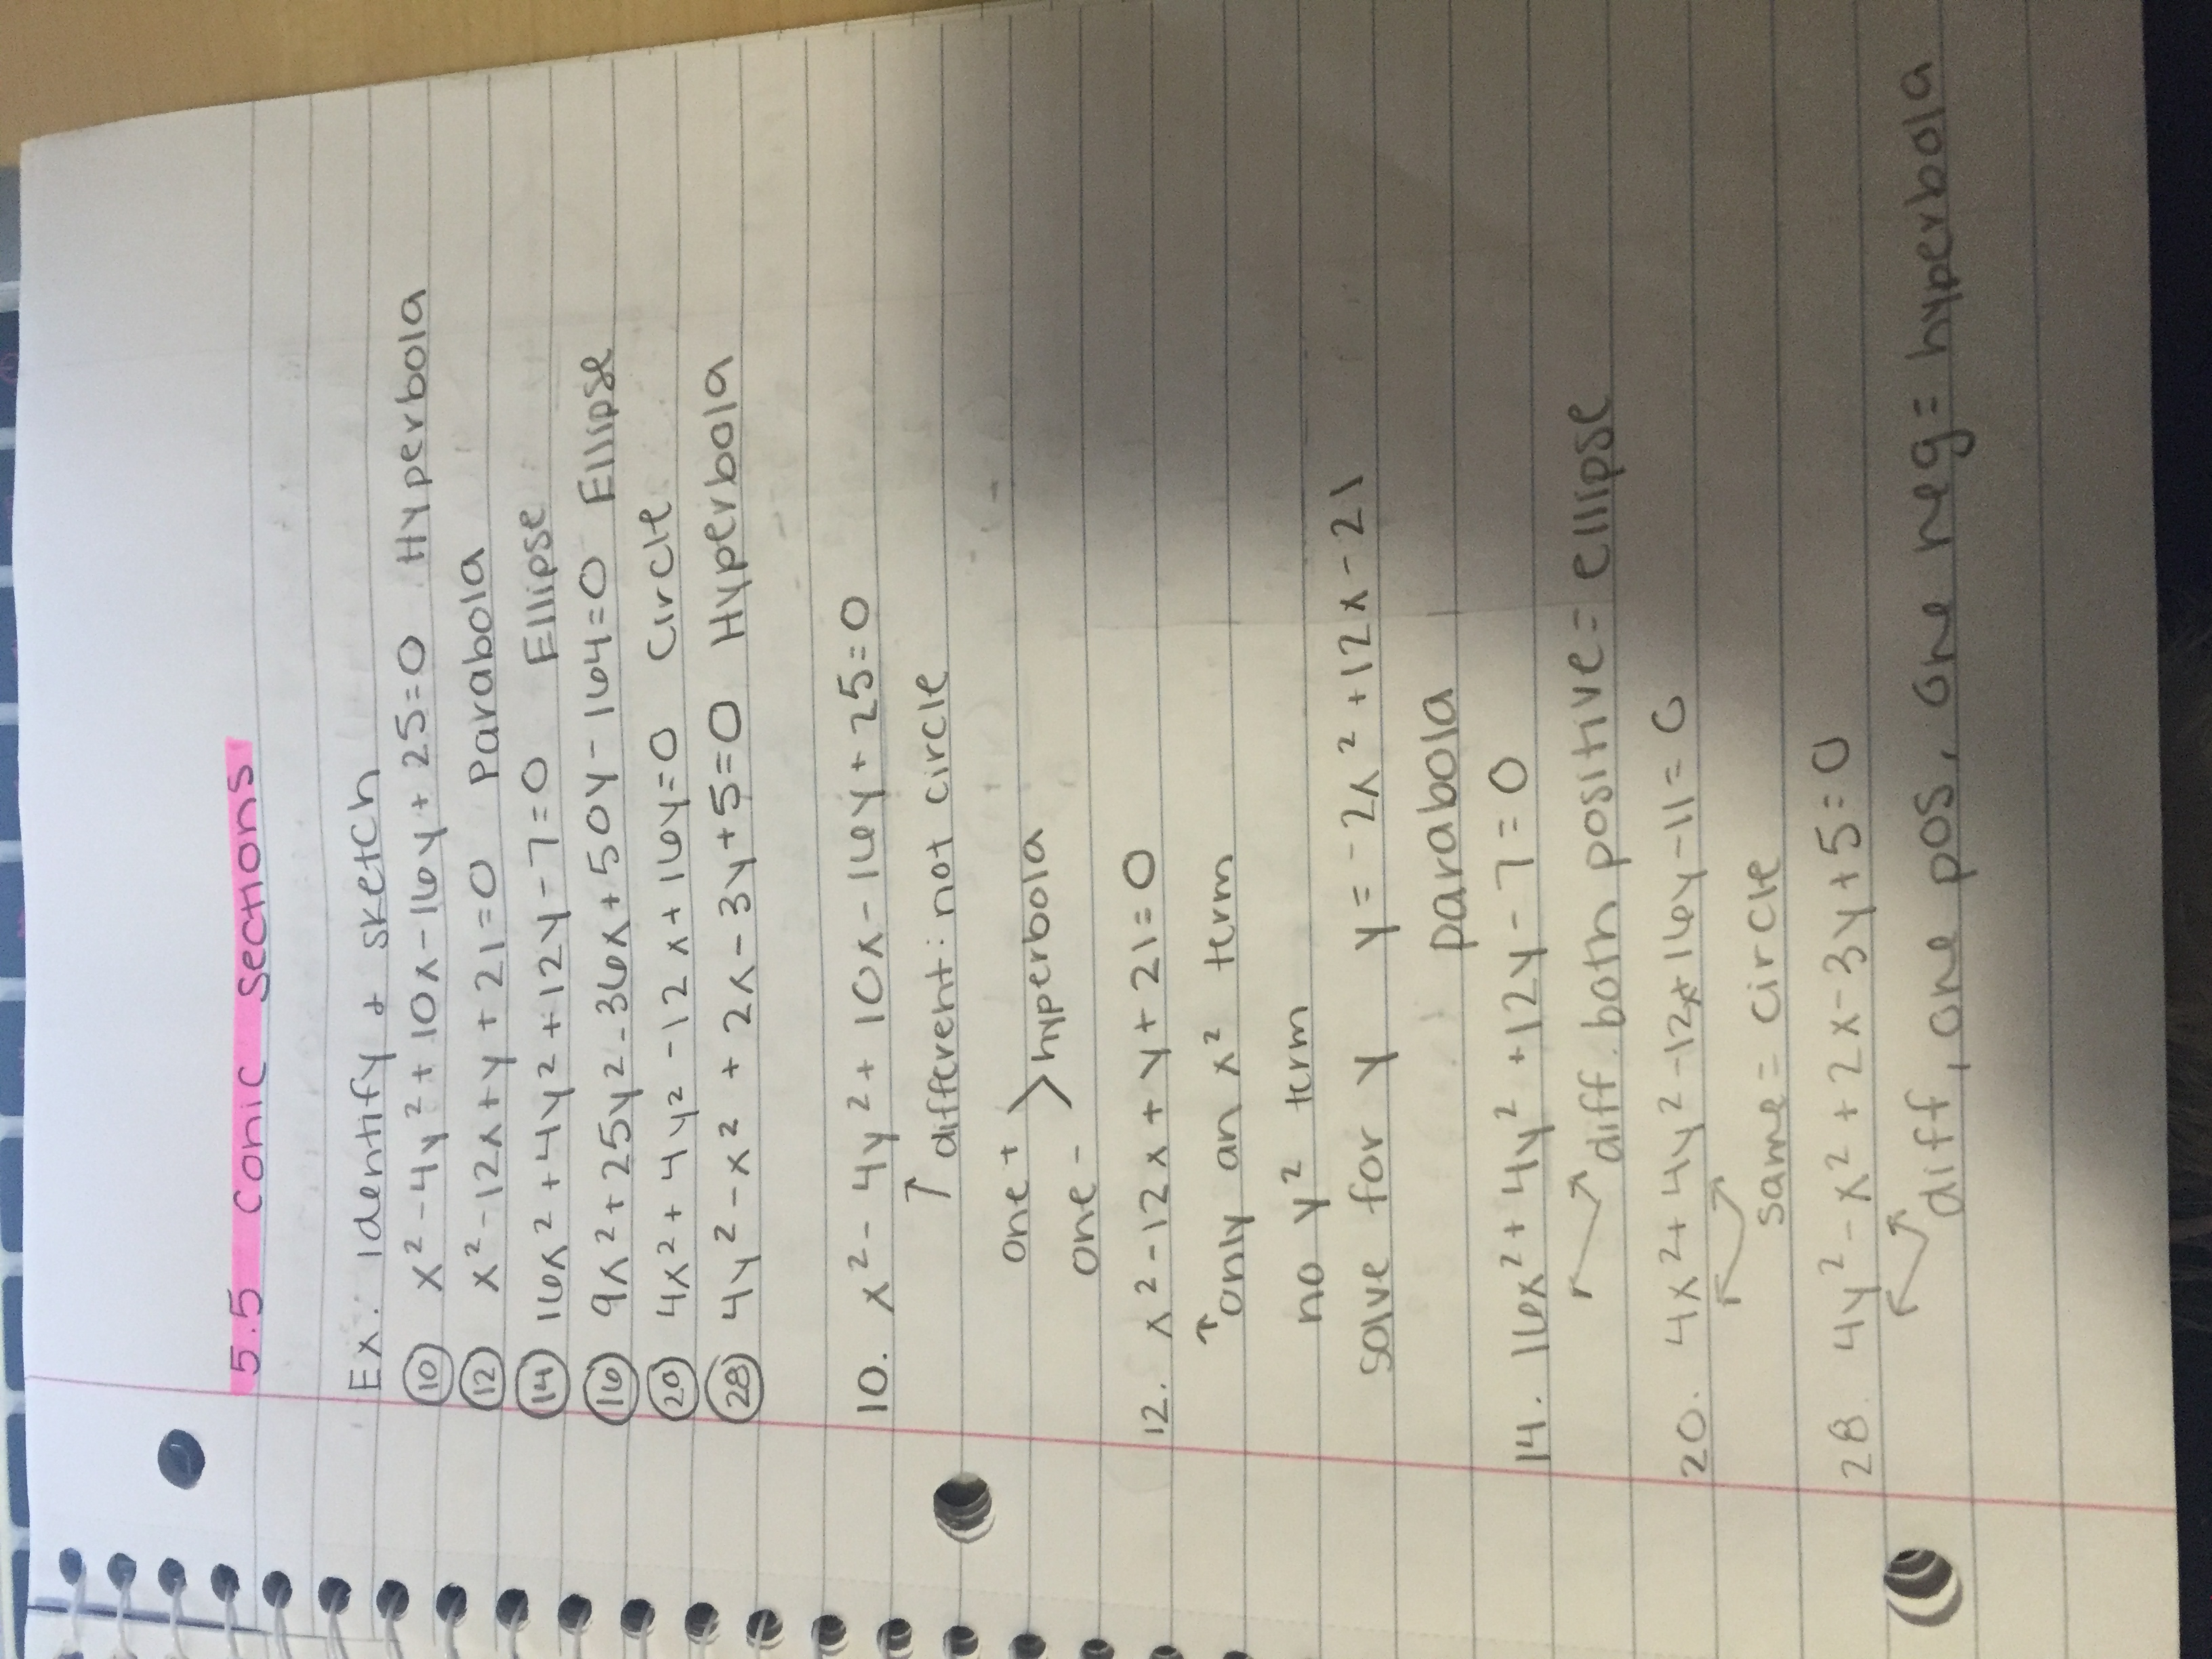 5.5 conic sections
Ex: identify + sketch
⑩ x² - 4y² + 10x - 16y + 25 = 0 Hyperbola
⑫ x² - 12x + y + 21 = 0 Parabola
⑭ 16x² + 4y² + 12y - 7 = 0 Ellipse
⑯ 9x² + 25y² - 36x + 50y - 164 = 0 Ellipse
⑳ 4x² + 4y² - 12x + 16y = 0 Circle
㉘ 4y² - x² + 2x - 3y + 5 = 0 Hyperbola
10. x² - 4y² + 10x - 16y + 25 = 0
↑ different: not circle
one +
> hyperbola
one -
12. x² - 12x + y + 21 = 0
↑ only an x² term
no y² term
solve for y y = -2x² + 12x - 21
parabola
14. 16x² + 4y² + 12y - 7 = 0
diff. both positive = ellipse
20. 4x² + 4y² - 12x + 16y - 11 = 0
same = circle
28. 4y² - x² + 2x - 3y + 5 = 0
diff, one pos, one neg = hyperbola